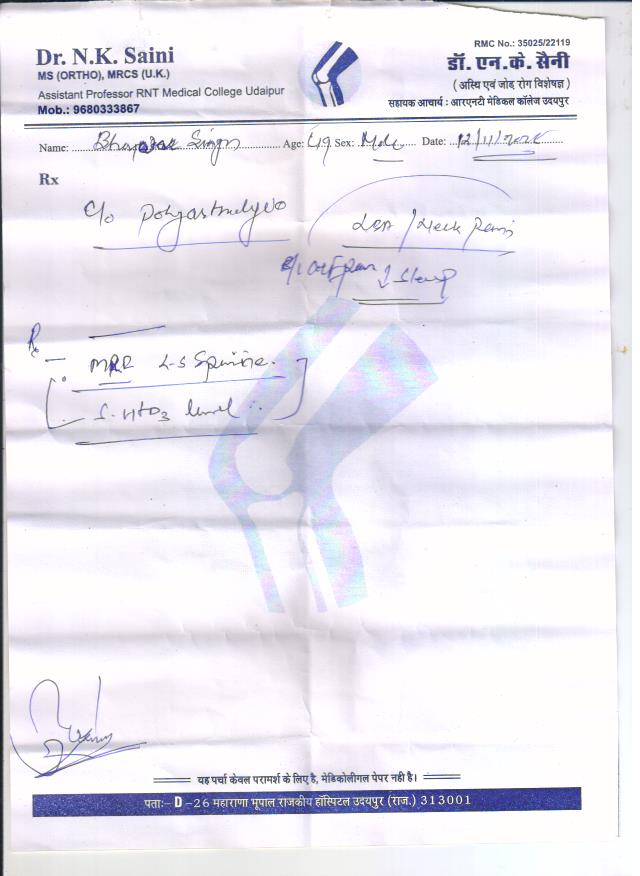 Dr. N.K. Saini
MS (ORTHO), MRCS (U.K.)
Assistant Professor RNT Medical College Udaipur
Mob.: 9680333867
RMC No.: 35025/22119
डॉ. एन. के. सैनी
( अस्थि एवं जोड़ रोग विशेषज्ञ )
सहायक आचार्य : आरएनटी मेडिकल कॉलेज उदयपुर
Name: Singh Age: 49 Sex: Male Date: 12/11/
Rx
c/o
/ Neck Pain
L-S Spine.
level
यह पर्चा केवल परामर्श के लिए है, मेडिकोलीगल पेपर नही है।
पताः- D -26 महाराणा भूपाल राजकीय हॉस्पिटल उदयपुर (राज.) 313001